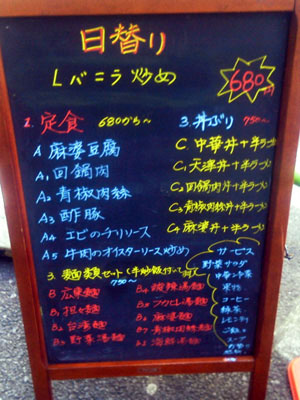 日替り
Lバニラ炒め
680円
1. 定食 680から〜
A 麻婆豆腐
A1 回鍋肉
A2 青椒肉絲
A3 酢豚
A4 エビのチリソース
A5 牛肉のオイスターソース炒め
3. 丼ぶり 750〜
C 中華丼+半ラーメン
C1 天津丼+半ラーメン
C2 回鍋肉丼+半ラーメン
C3 青椒肉絲丼+半ラーメン
C4 麻婆丼+半ラーメン
3. 麺類セット(半炒飯付いて
750〜
B 広東麺
B1 担々麺
B2 台湾麺
B3 野菜湯麺
B4 酸辣湯麺
B5 フカヒレ湯麺
B7 青椒肉絲麺
海鮮湯麺
サービス
野菜サラダ
果物
コーヒー
緑茶
レモンティ
ごはん
スープ